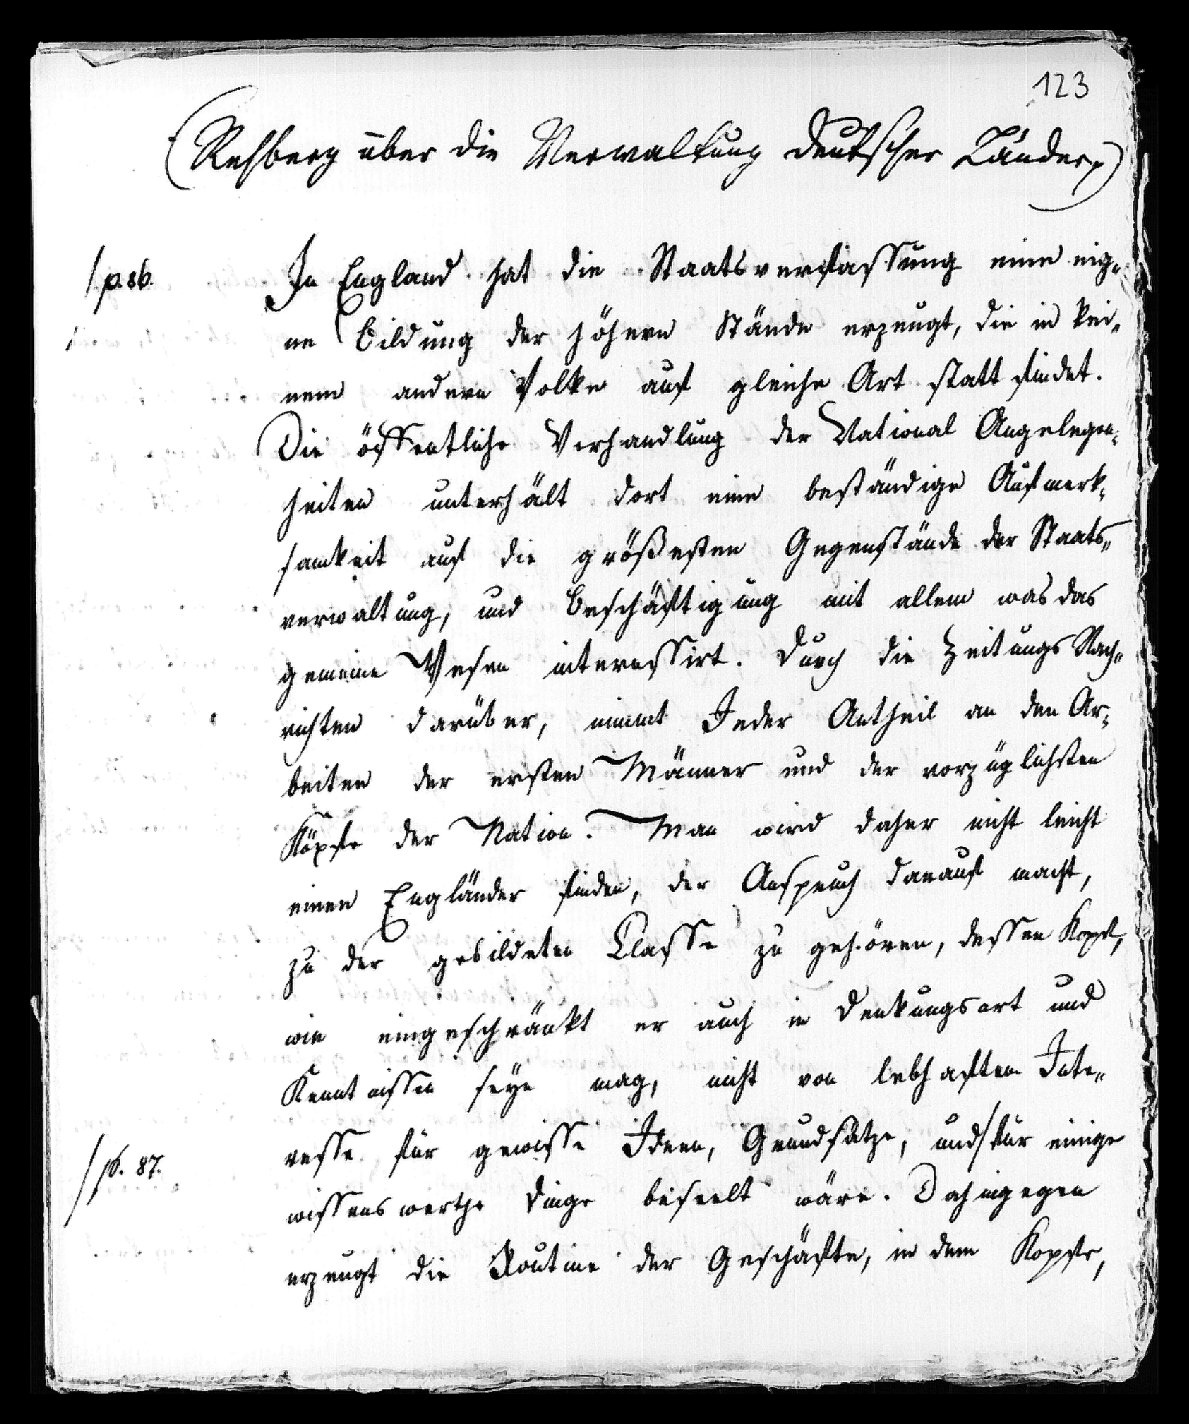 123
(Rehberg über die Verwaltung deutscher Länder)
/p. 86. In England hat die Staatsverfassung eine eig„
ne Bildung der höhern Stände erzeugt, die in kei„
nem andern Volke auf gleiche Art statt findet.
Die öffentliche Verhandlung der National Angelegen„
heiten unterhält dort eine beständige Aufmerk„
samkeit auf die größesten Gegenstände der Staats„
verwaltung, und Beschäftigung mit allem was das
gemeine Wesen interessirt. Durch die Zeitungs Nach„
richten darüber, nimmt Jeder Antheil an den Ar„
beiten der ersten Männer und der vorzüglichsten
Köpfe der Nation. Man wird daher nicht leicht
einen Engländer finden, der Anspruch darauf macht,
zu der gebildeten Classe zu gehören, dessen Kopf,
wie eingeschränkt er auch in Denkungsart und
Kenntnissen seyn mag, nicht von lebhaftem Inte„
resse für gewisse Ideen, Grundsätze, und/für einige
/p. 87. wissenswerthe Dinge beseelt wäre. Dahingegen
erzeugt die Routine der Geschäfte, in dem Kopfe,